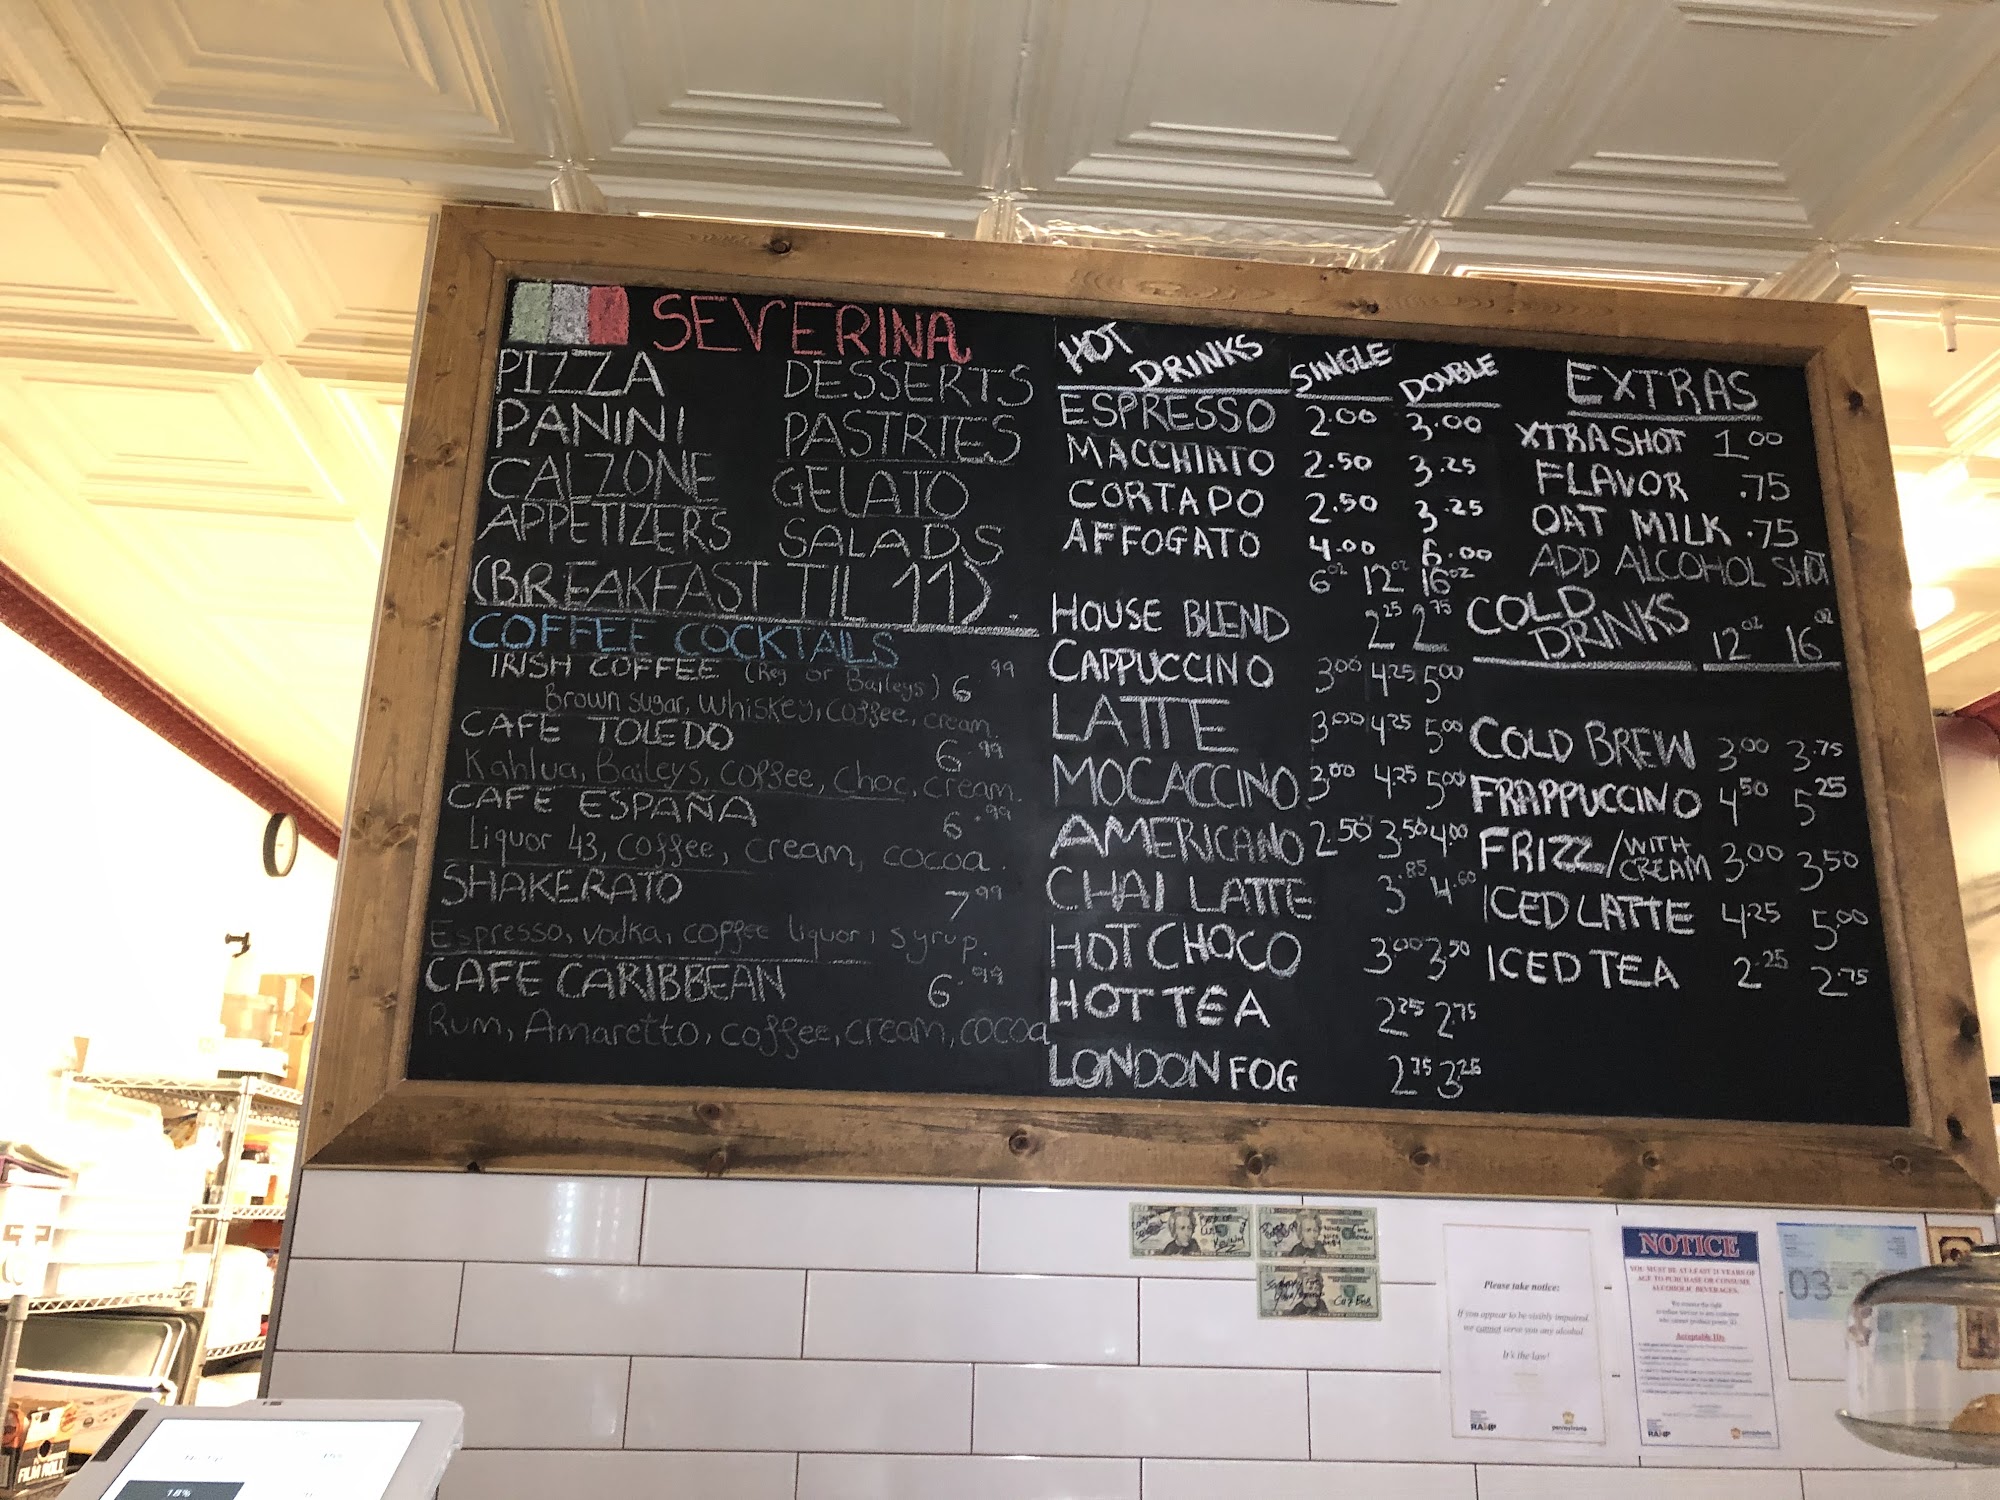 SEVERINA
PIZZA DESSERTS
PANINI PASTRIES
CALZONE GELATO
APPETIZERS SALADS
(BREAKFAST TIL 11).
COFFEE COCKTAILS
IRISH COFFEE (Reg or Baileys) 6.99
Brown sugar, whiskey, coffee, cream.
CAFE TOLEDO 6.99
Kahlua, Baileys, coffee, choc, cream.
CAFE ESPAÑA 6.99
Liquor 43, coffee, cream, cocoa.
SHAKERATO 7.99
Espresso, vodka, coffee liquor, syrup.
CAFE CARIBBEAN 6.99
Rum, Amaretto, coffee, cream, cocoa
HOT DRINKS SINGLE DOUBLE
ESPRESSO 2.00 3.00
MACCHIATO 2.50 3.25
CORTADO 2.50 3.25
AFFOGATO 4.00 6.00
6oz 12oz 16oz
HOUSE BLEND 2.25 2.75
CAPPUCCINO 3.00 4.25 5.00
LATTE 3.00 4.25 5.00
MOCACCINO 3.00 4.25 5.00
AMERICANO 2.50 3.50 4.00
CHAI LATTE 3.85 4.60
HOT CHOCO 3.00 3.50
HOT TEA 2.25 2.75
LONDON FOG 2.75 3.25
EXTRAS
XTRA SHOT 1.00
FLAVOR .75
OAT MILK .75
ADD ALCOHOL SHOT
COLD DRINKS 12oz 16oz
COLD BREW 3.00 3.75
FRAPPUCCINO 4.50 5.25
FRIZZ/WITH CREAM 3.00 3.50
ICED LATTE 4.25 5.00
ICED TEA 2.25 2.75
Please take notice:
If you appear to be visibly impaired
we cannot serve you any alcohol.
It's the law!
RAMP
pennsylvania
NOTICE
YOU MUST BE AT LEAST 21 YEARS OF
AGE TO PURCHASE OR CONSUME
ALCOHOLIC BEVERAGES.
Acceptable IDs
RAMP
03-
FILM ROLL
18%